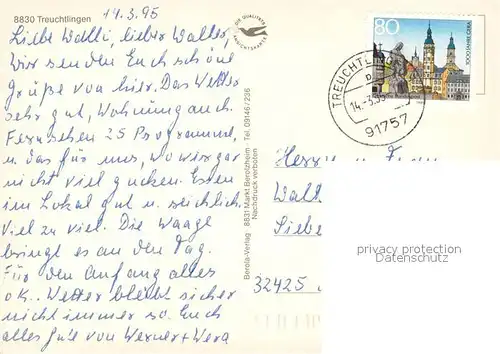 8830 Treuchtlingen
14.3.95
Liebe Walli, lieber Walter,
Wir senden Euch schöne
Grüße von hier. Das Wetter
sehr gut, Wohnung auch.
Fernsehen 25 Programme,
u. das für uns, wo wir gar
nicht viel gucken. Essen
im Lokal gut u. reichlich.
Viel zu viel. Die Waage
bringt es an den Tag.
Für den Anfang alles
ok. Wetter bleibt sicher
nicht immer so. Euch
alles Gute von Werner + Wera
DIE QUALITÄTS
ANSICHTSKARTE
Berola-Verlag 8831 Markt Berolzheim Tel. 09146/226
Nachdruck verboten
80
1000 JAHRE GERA
TREUCHTLING
14.-3.95
91757
Herrn u. Frau
Walt
Siebe
32425
privacy protection
Datenschutz